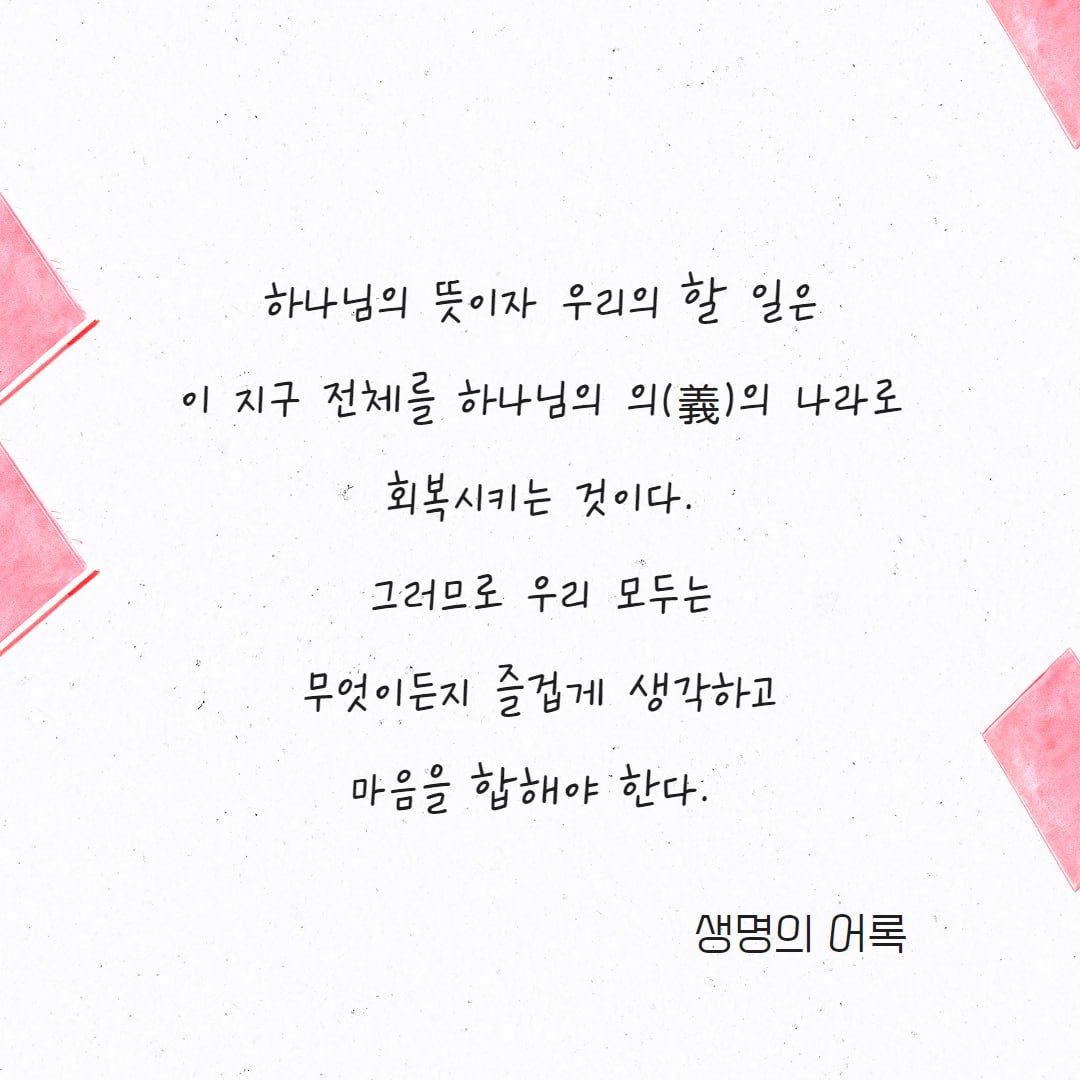 하나님의 뜻이자 우리의 할 일은
이 지구 전체를 하나님의 의(義)의 나라로
회복시키는 것이다.
그러므로 우리 모두는
무엇이든지 즐겁게 생각하고
마음을 합해야 한다.
생명의 어록